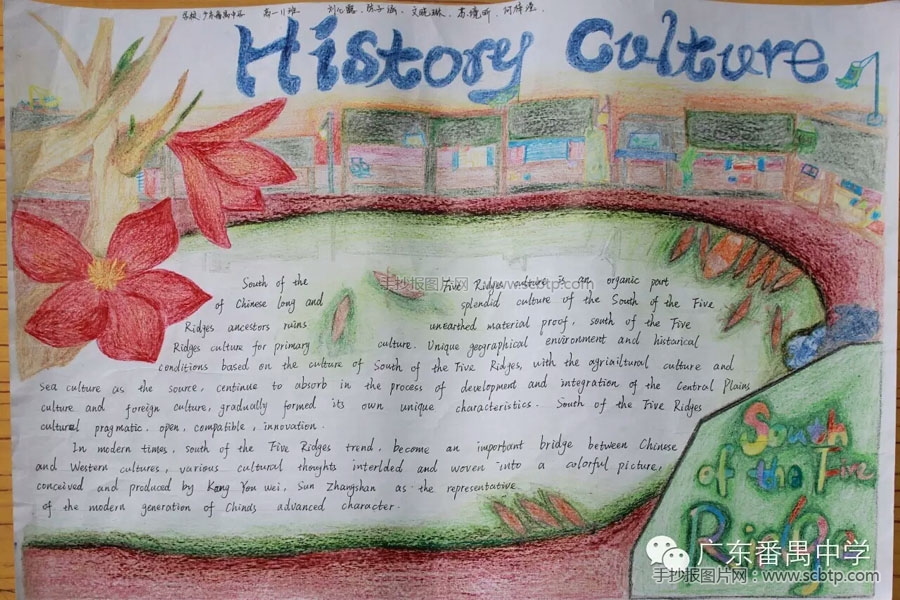 学校：广东番禺中学 高一11班
History Culture
South of the Five Ridges culture is an organic part
of Chinese long and splendid culture of the South of the Five
Ridges ancestors ruins unearthed material proof, south of the Five
Ridges culture for primary culture. Unique geographical environment and historical
conditions based on the culture of South of the Five Ridges, with the agriailtural culture and
sea culture as the source, continue to absorb in the process of development and integration of the Central Plains
culture and foreign culture, gradually formed its own unique characteristics. South of the Five Ridges
cultural pragmatic, open, compatible, innovation.
In modern times, south of the Five Ridges trend, become an important bridge between Chinese
and Western cultures, various cultural thoughts interlded and woven into a colorful picture,
conceived and produced by Kang You wei, Sun Zhangshan as the representative
of the modern generation of Chinds advanced character.
手抄报图片网：www.scbtp.com
South
of the Five
Ridge
广东番禺中学
手抄报图片网：www.scbtp.com